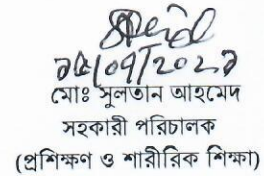 মোঃ সুলতান আহমেদ
সহকারী পরিচালক
(প্রশিক্ষণ ও শারীরিক শিক্ষা)